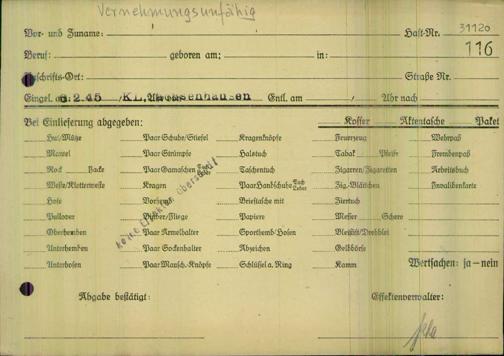 Vernehmungsunfähig
Vor- und Zuname: Haft-Nr. 31120
Beruf: geboren am: in: 116
Anschrifts-Ort: Straße Nr.
Eingel. am 6.2.45 KL. Sachsenhausen Entl. am / Uhr nach
Bei Einlieferung abgegeben: Koffer Aktentasche Paket
Hut/Mütze Paar Schuhe/Stiefel Kragenknöpfe Feuerzeug Wehrpaß
Mantel Paar Strümpfe Halstuch Tabak Pfeife Fremdenpaß
Rock Jacke Paar Gamaschen Tuch Leder Taschentuch Zigarren/Zigaretten Arbeitsbuch
Weste/Kletterweste Kragen Paar Handschuhe Tuch Leder Zig.-Blättchen Invalidenkarte
Hose Vorhemd Brieftasche mit Ziertuch
Pullover Binder/Fliege Papiere Messer Schere
Oberhemden Paar Ärmelhalter Sporthemd/Hosen Bleistift/Drehblei
Unterhemden Paar Sockenhalter Abzeichen Geldbörse
Unterhosen Paar Mansch.-Knöpfe Schlüssel a. Ring Kamm Wertsachen: ja – nein
keine Effekten übersandt
Abgabe bestätigt: Effektenverwalter: